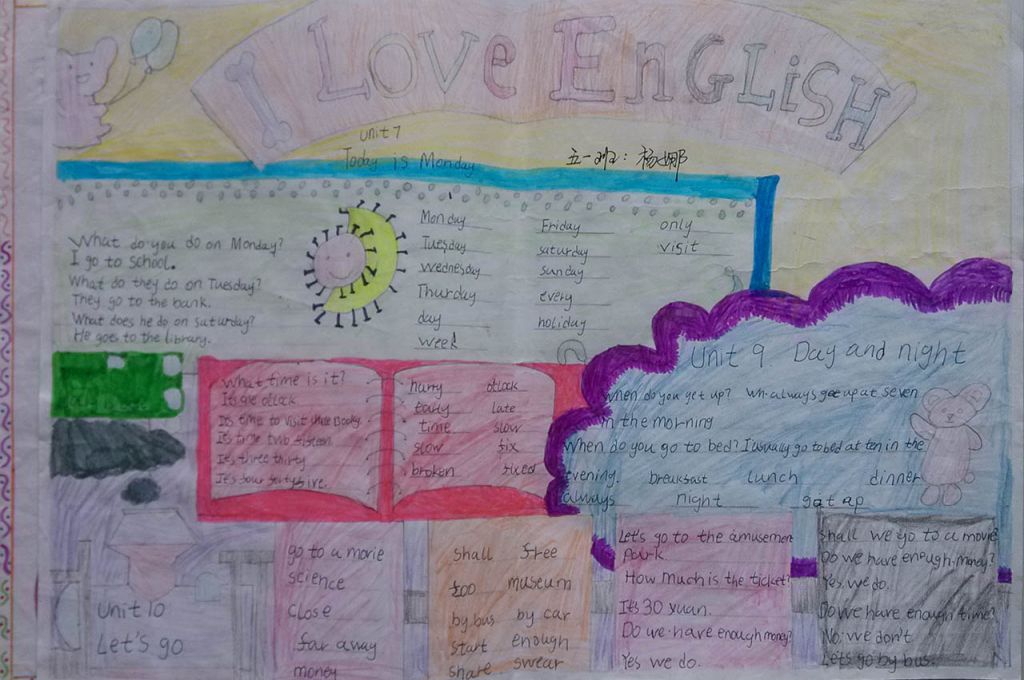 I LOVE ENGLISH
Unit 7
Today is Monday
五一班：杨娜
What do you do on Monday?
I go to school.
What do they do on Tuesday?
They go to the bank.
What does he do on saturday?
He goes to the library.
Monday
Tuesday
Wednesday
Thurday
day
week
Friday
saturday
sunday
every
holiday
only
visit
What time is it?
It's
It's time to visit
It's time two fifteen
It's three thirty
It's four
hurry
early
time
slow
broken
late
slow
six
fixed
Unit 9 Day and night
When do you get up? We always get up at seven
in the morning
When do you go to bed? I usually go to bed at ten in the
evening. breakfast lunch dinner
always night get up
Unit 10
Let's go
go to a movie
science
close
far away
money
shall free
zoo museum
by bus by car
start enough
share swear
Let's go to the amusement
park
How much is the ticket?
It's 30 yuan.
Do we have enough money?
Yes we do.
Shall we go to a movie
Do we have enough money?
Yes. we do.
Do we have enough time?
No. we don't
Let's go by bus.